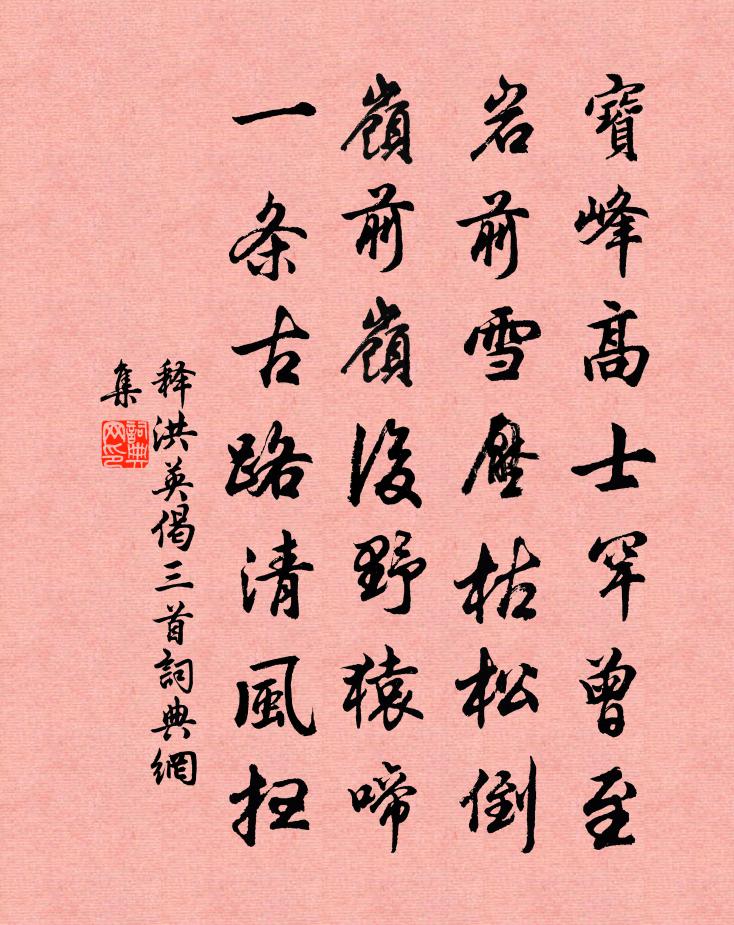 寶峰高士罕曾至
岩前雪壓枯松倒
嶺前嶺後野猿啼
一条古路清風扫
释洪英偈三首詞典網
集
詞典网印